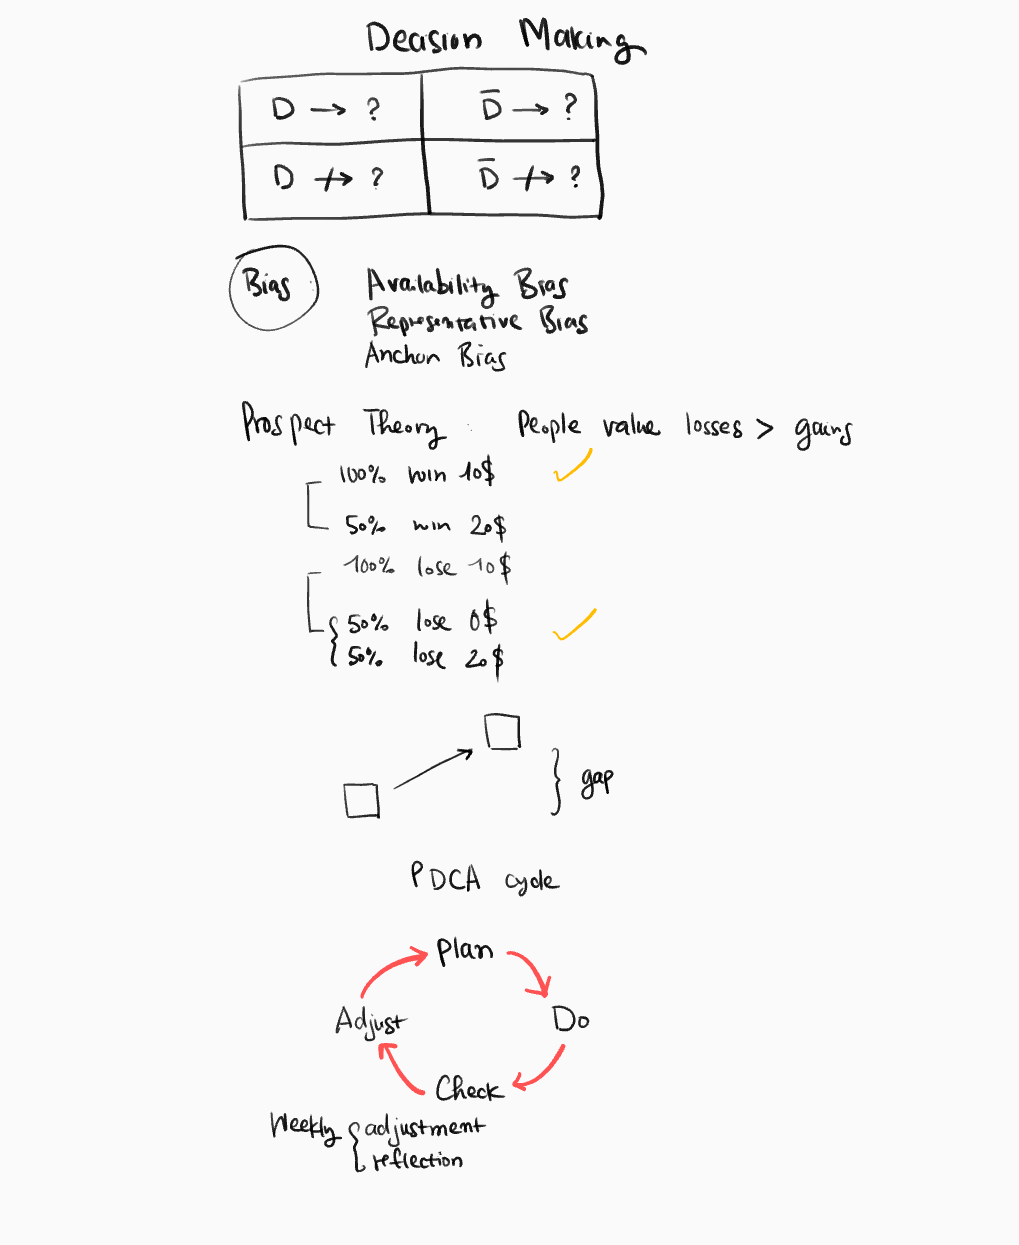 Decision Making
D → ? D̅ → ?
D ↛ ? D̅ ↛ ?
Bias
Availability Bias
Representative Bias
Anchor Bias
Prospect Theory : People value losses > gains
100% win 10$ ✓
50% win 20$
100% lose 10$
50% lose 0$ ✓
50% lose 20$
gap
PDCA cycle
Plan
Adjust Do
Check
Weekly { adjustment
reflection